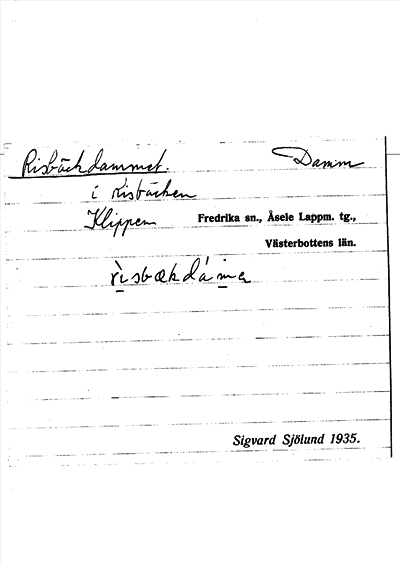 Risbäckdammet. Damm
i Risbäcken
Klippen Fredrika sn., Åsele Lappm. tg.,
Västerbottens län.
rìsbækdáma
Sigvard Sjölund 1935.